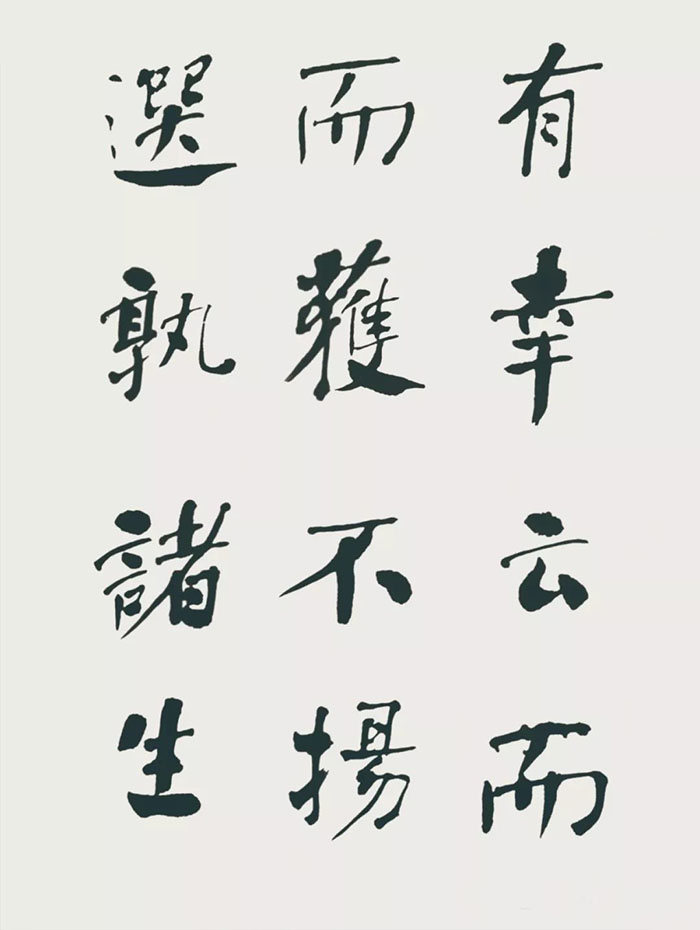 有幸
而獲
選孰
云而
不揚
諸生